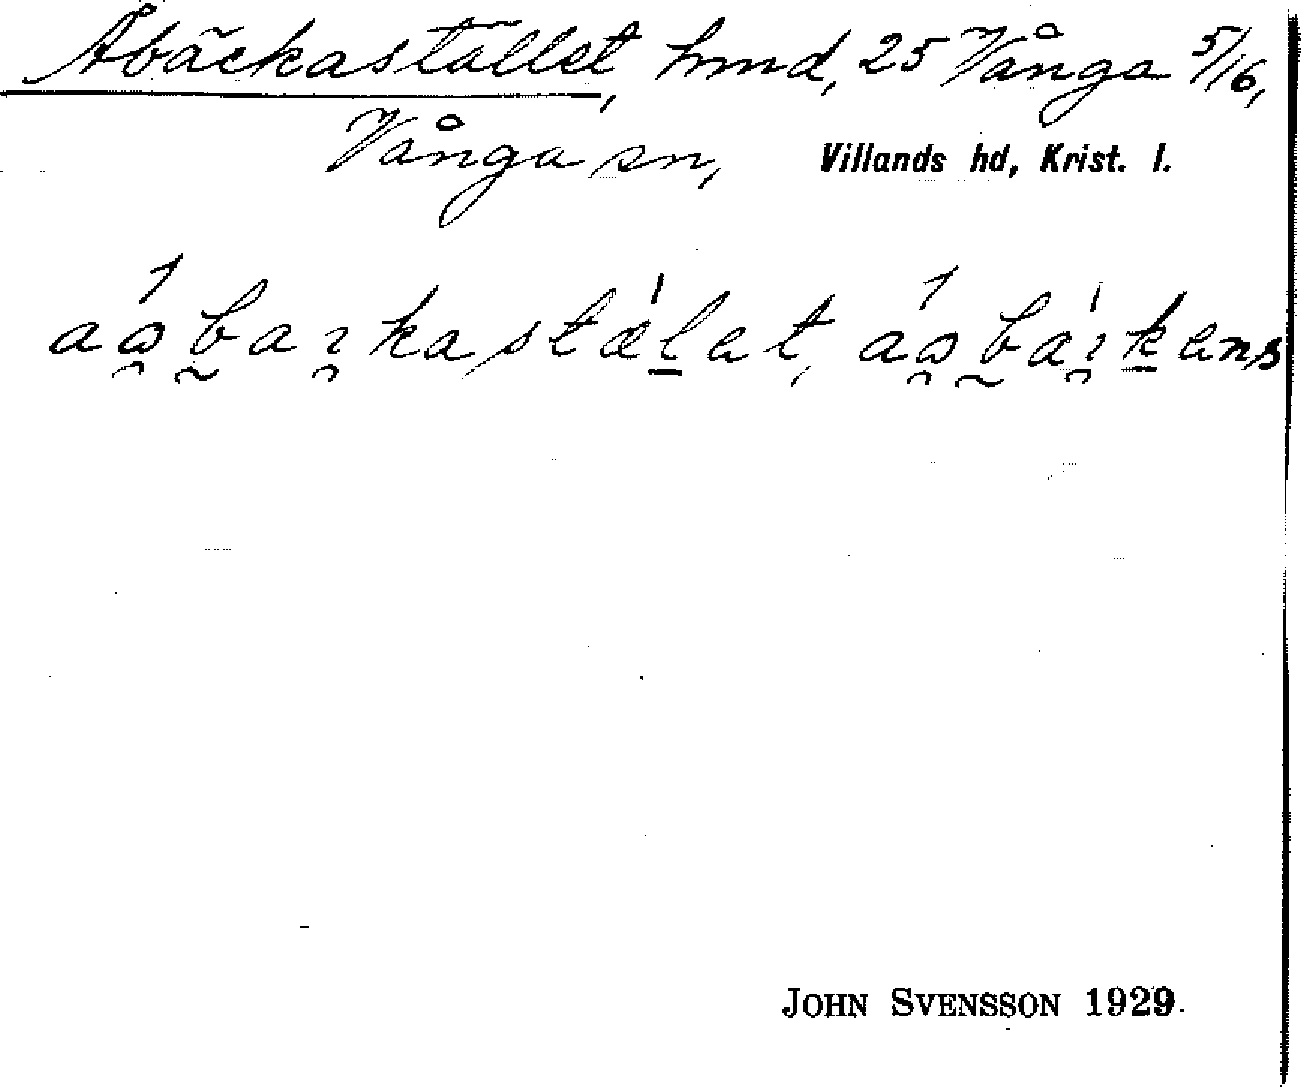 Åbäckastället, hmd, 25 Vånga 5/16,
Vånga sn, Villands hd, Krist. l.
JOHN SVENSSON 1929.